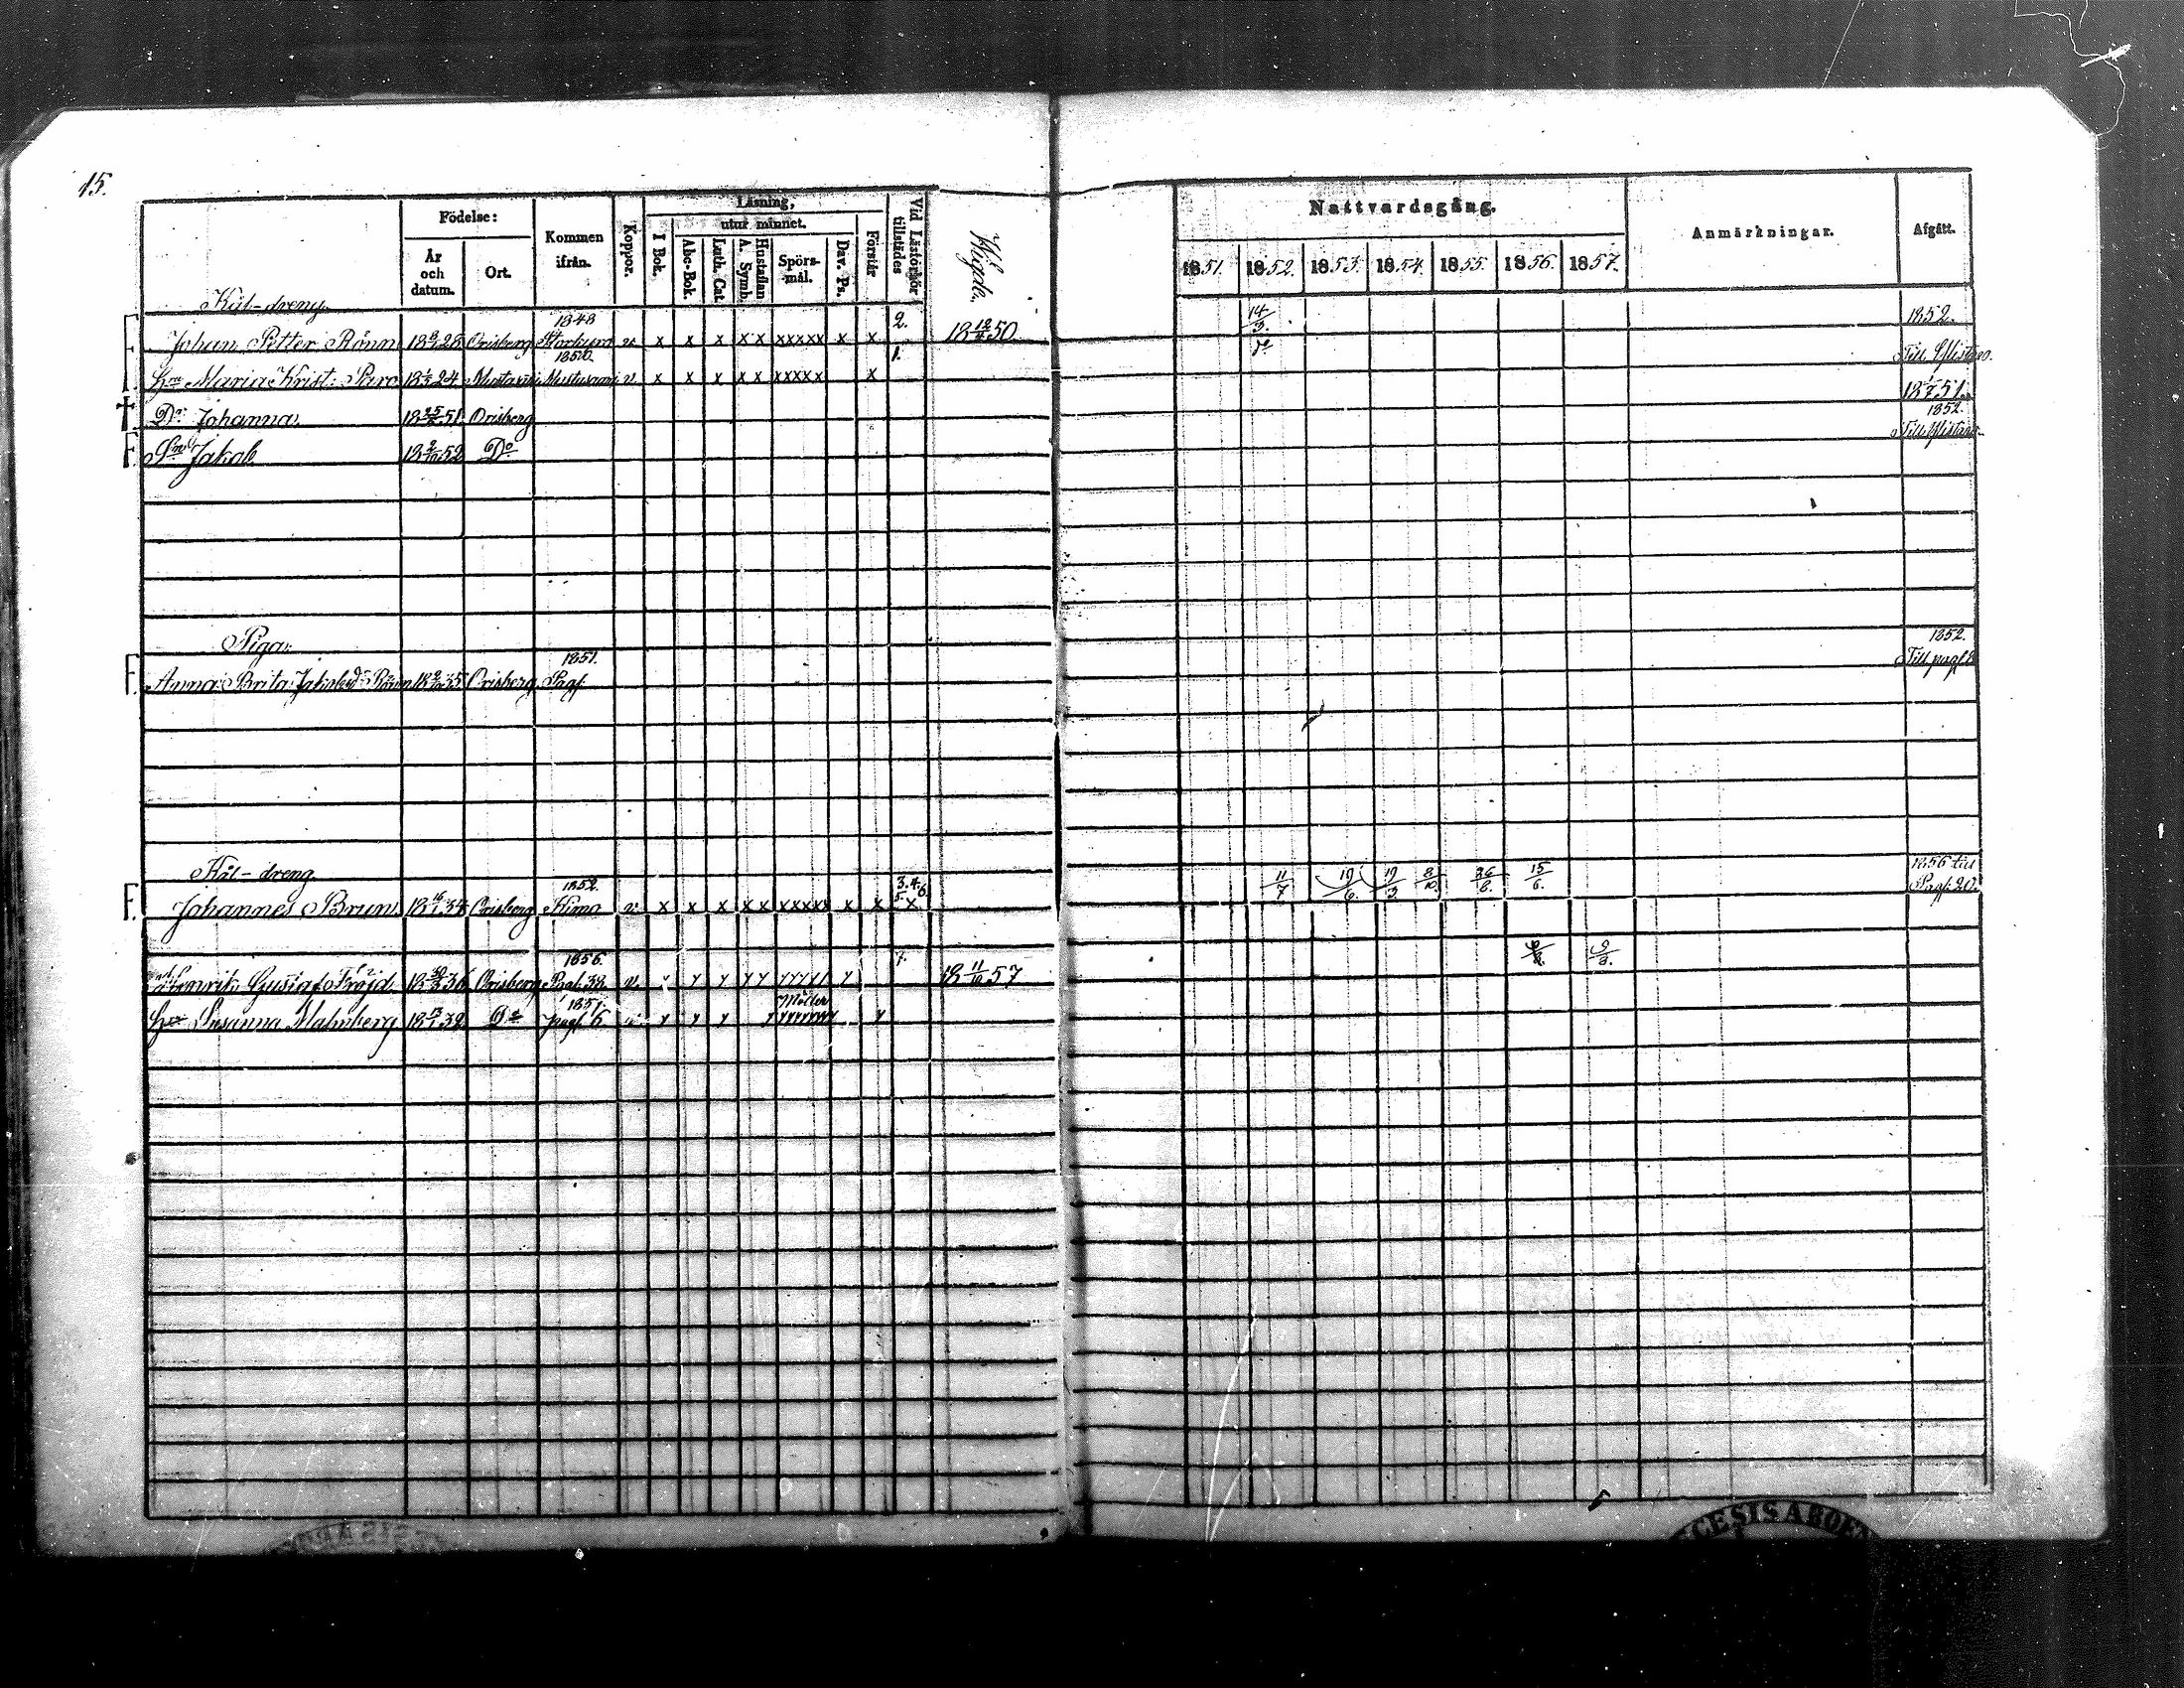 15.
Födelse:
År och datum.
Ort.
Kommen ifrån.
Koppor.
Läsning,
utur minnet.
I Bok.
Abc-Bok.
Luth. Cat.
Hustaflan
A. Symb.
Spörs-mål.
Dav. Ps.
Förstår
Vid Läsförhör tillstädes
Wigde.
Nattvardsgång.
1851. 1852. 1853. 1854. 1855. 1856. 1857.
Anmärkningar.
Afgått.
Kål-dreng.
F. Johan Petter Rönn 28 Orisberg 1848 Storkyro v x x x x x xxxxx x x 2. 18 50. 14/3. 1852.
F. Hru Maria Krist: 24 1850. v. x x x x x xxxxx x 1. do Till
†. Dr Johanna. 18 25 51. Orisberg 51.
F. Sn Jakob 52 Do 1852. Till
Piga.
F. Anna Brita Jakobsd. Rönn 35 Orisberg 1851. Pag. 1852. Till pag.
Kål-dreng.
F. Johannes Brun 18 16/1 34 Orisberg 1852. Kimo v. x x x x x xxxxx x x 3. 4. 5. 6 x 11/7 19/6. 19/3. 8/10. 26/8. 15/6. 1856 till Pag. 20.
Henrik Gustaf Fröjd 36 Orisberg 1856. Pag. 38 v. 7. 18 11/10 57
Hru Susanna Malmberg 32 Do 1851. pag. 6 Möller
CESIS ABOEN